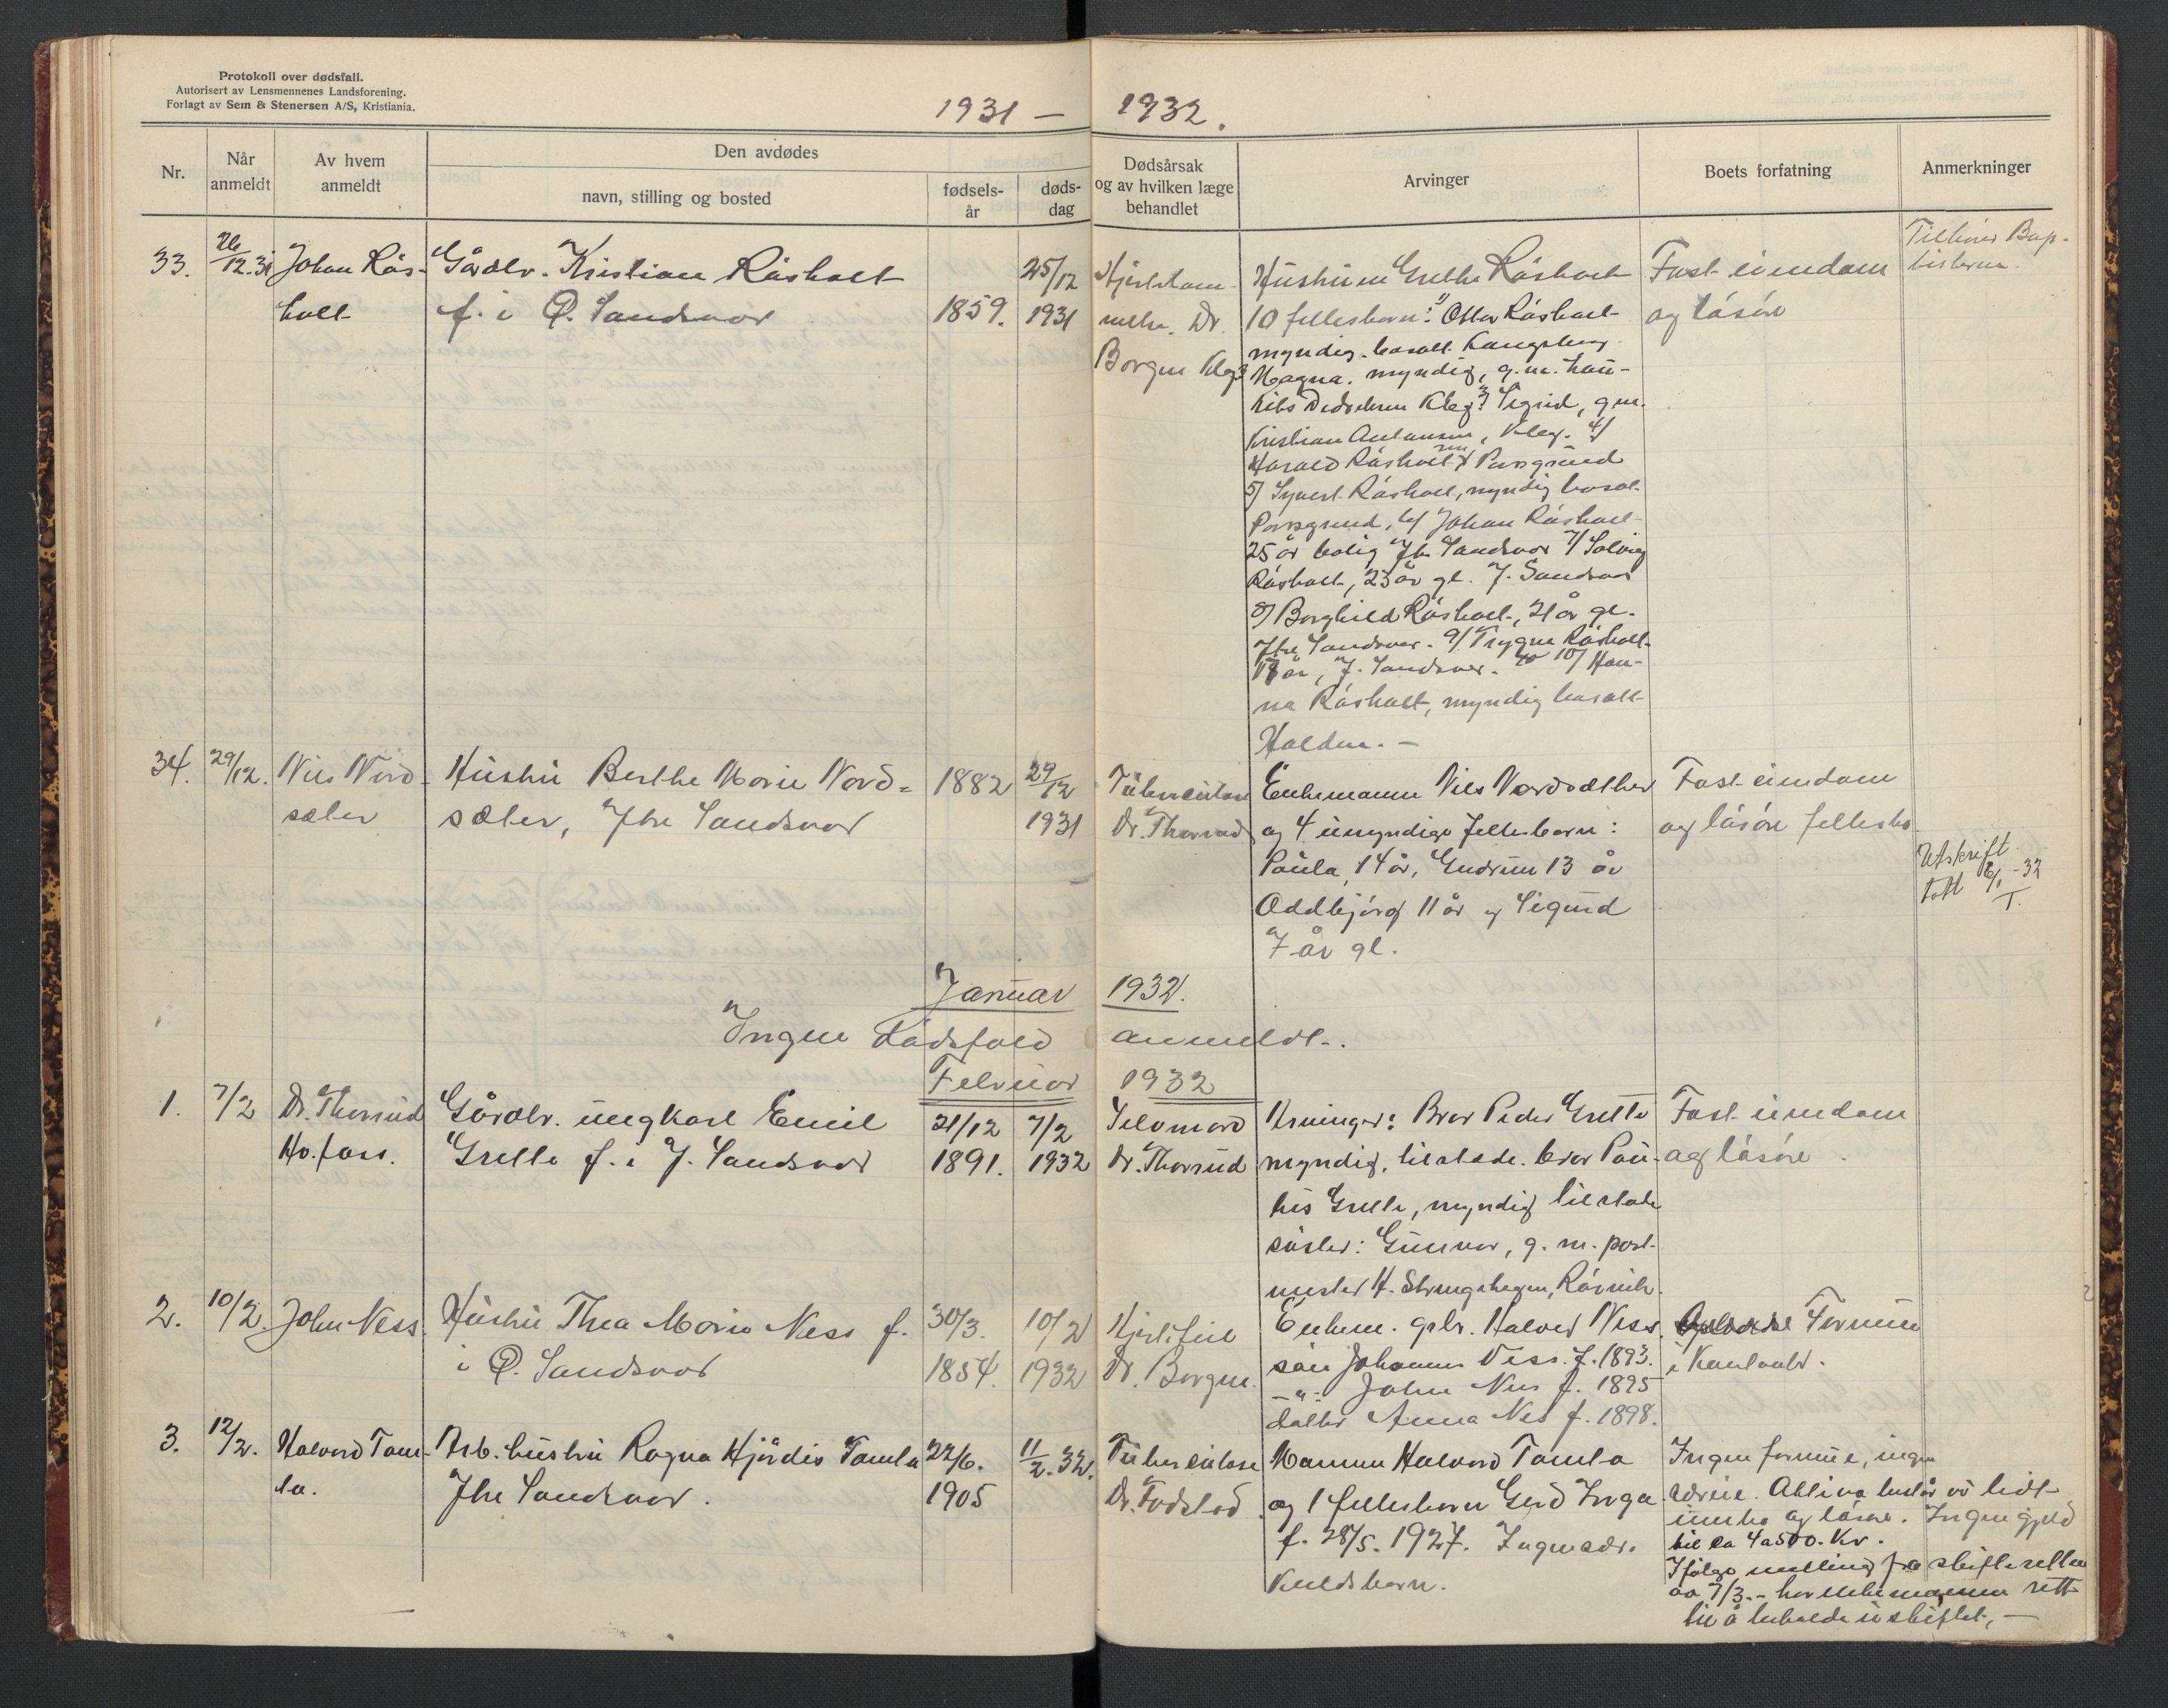 Protokoll over dødsfall.
Autorisert av Lensmennenes Landsforening.
Forlagt av Sem & Stenersen A/S, Kristiania.
1931 – 1932.
Nr.
Når anmeldt
Av hvem anmeldt
Den avdødes
navn, stilling og bosted
fødsels-år
døds-dag
Dødsårsak og av hvilken læge behandlet
Arvinger
Boets forfatning
Anmerkninger
33.
26/12.31
Johan Rås-
holt
Gårdbr. Kristian Råsholt
f. i Ø. Sandsvær
1859.
25/12
1931
Dr.
Borgen Kbg
Hustruen Grethe Råsholt
10 fellesbarn: 1) Otto Råsholt
myndig, bosatt Kongsberg
Magna, myndig, g. m. Lau-
Kbg. 3) Sigrid, g.m.
Kristian Antonsen, Kbg. 4)
Harald Råsholt, Porsgrund
5) Syvert Råsholt, myndig bosat
Porsgrund, 6) Johan Råsholt
25 år bolig Ytre Sandsvær 7) Solveig
Råsholt, 23 år gl. Y. Sandsvær
8) Borghild Råsholt, 21 år gl.
Ytre Sandsvær. 9) Trygve Råsholt
18 år, Y. Sandsvær. 10) Han-
na Råsholt, myndig bosatt
Halden. –
Fast eiendom
og løsøre
Tilhører Bap-
tisterne.
34.
29/12.
Nils Nord-
sæter
Hustru Berthe Marie Nord-
sæter, Ytre Sandsvær
1882
29/12
1931
Tuberkulose
Dr. Thorrud
Enkemann Nils Nordsæther
og 4 umyndige fellesbarn:
Paula, 14 år, Gudrun 13 år
Oddbjørg 11 år og Sigurd
7 år gl.
Fast eiendom
og løsøre fellesbo
Utskrift
tatt 6/1-32
T.
Januar 1932.
Ingen dødsfald anmeldt.
Februar 1932
1.
7/2
Dr. Thorrud
Hv.foss.
Gårdbr. ungkarl Emil
Grette f. i Y. Sandsvær
21/12
1891.
7/2
1932
Selvmord
Dr. Thorrud
Arvinger: Bror Peder Grette
myndig, tilstede. bror Pau-
lus Grette, myndig tilstede
søster: Gunvor, g. m. post-
mester H. Strengehagen, Rjukan.
Fast eiendom
og løsøre.
2.
10/2.
John Ness.
Hustru Thea Marie Ness f.
i Ø. Sandsvær
30/3.
1854.
10/2
1932
Hjertefeil
Dr. Borgen.
Enkem. gbr. Halvor Ness.
søn Johannes Ness. f. 1893.
– " – John Nes f. 1895
datter Anna Nes f. 1898.
Formue
i Kontanter.
3.
12/2.
Halvord Tam-
la.
Arb. hustru Ragna Hjørdis Tamla
Ytre Sandsvær.
22/6.
1905
11/2.32.
Tuberkulose
Dr. Fodstad
Mannen Halvord Tamla
og 1 fellesbarn Gerd Inga
f. 28/5. 1927. Ingen sær-
kuldsbarn.
Ingen formue, ingen
særeie. Aktiva består av lidt
innbo og løsøre. Ingen gjeld
til ca 4 a 500. Kr.
Ifølge melding fra skifteretten
av 7/3.– har enkemannen rett
til å beholde uskiftet. –